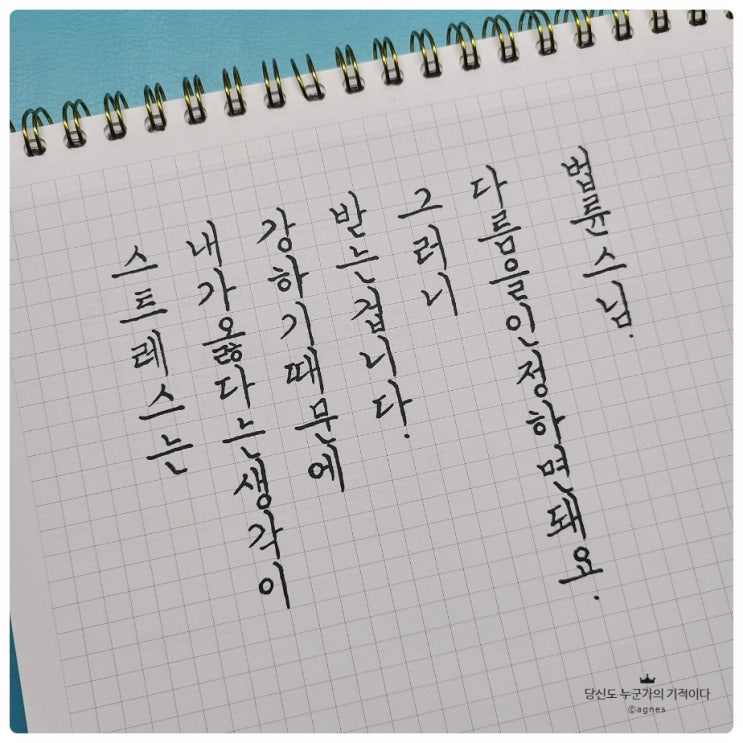 스트레스는
내가옳다는생각이
강하기때문에
받는겁니다.
그러니
다름을인정하면돼요.
법륜스님.
당신도 누군가의 기적이다
©agnes